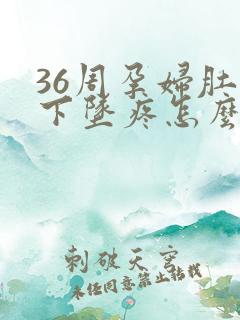 36周孕婦肚
下墜疼怎麼
刺破天穹
未经同意禁止转载